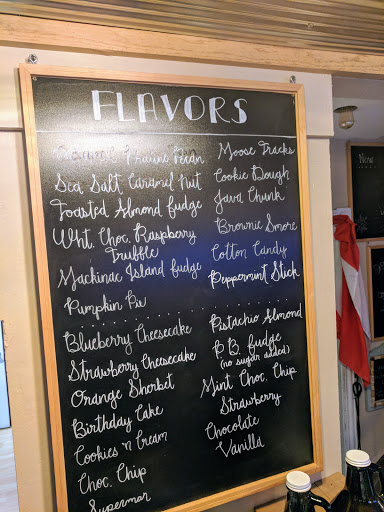 FLAVORS
Bean
Sea Salt Caramel Nut
Toasted Almond fudge
Wht. Choc. Raspberry
Truffle
Mackinac Island fudge
Pumpkin Pie
Blueberry Cheesecake
Strawberry Cheesecake
Orange Sherbet
Birthday Cake
Cookies 'n Cream
Choc. Chip
Superman
Moose Tracks
Cookie Dough
Java Chunk
Brownie Smore
Cotton Candy
Peppermint Stick
Pistachio Almond
P.B. fudge
(no sugar added)
Mint Choc. Chip
Strawberry
Chocolate
Vanilla